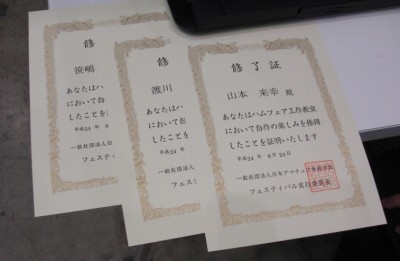 修
笹嶋
あなたは
において自
したことを
平成24年
一般社団法人日
フェスティ
修
渡川
あなたはハ
において
したことを
平成24年
一般社団法人
フェスティバル
修了証
山本 来幸 殿
あなたはハムフェア工作教室
において自作の楽しみを修得
したことを証明いたします
平成24年 8月24日
一般社団法人日本アマチュア無線連盟
フェスティバル実行委員長